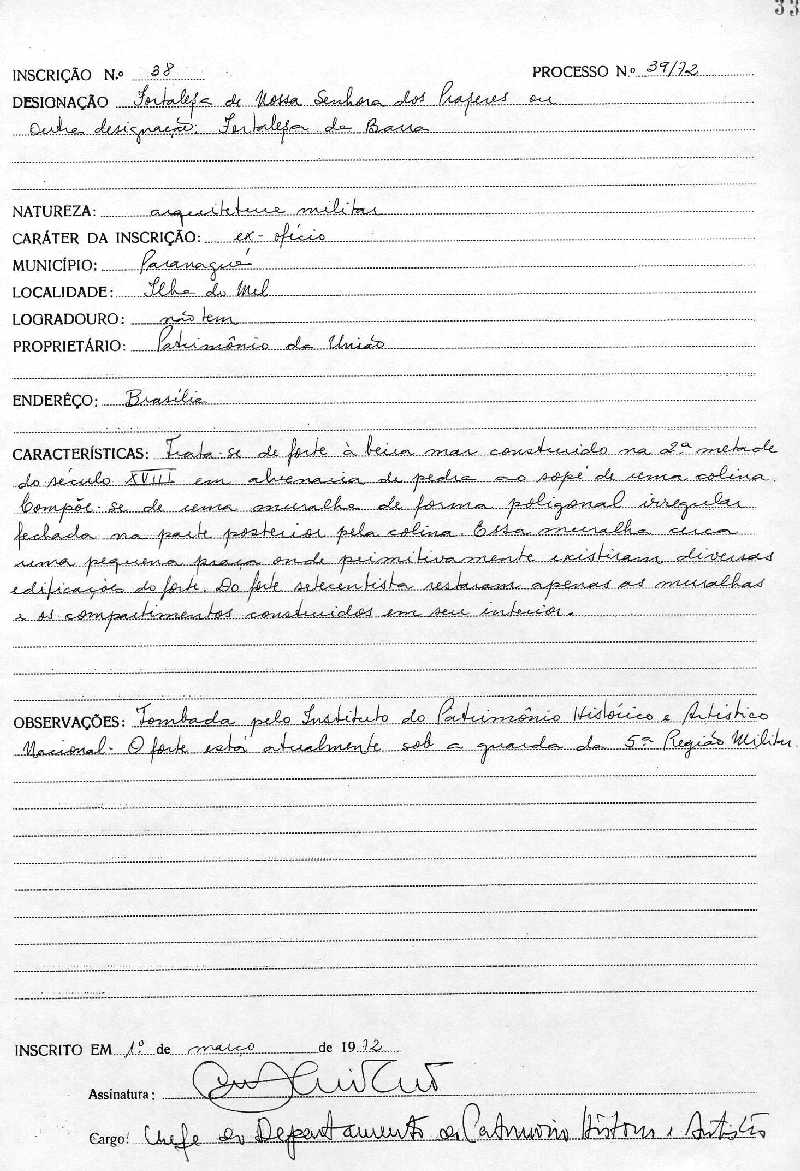 33
INSCRIÇÃO N.º 38 PROCESSO N.º 39/72
DESIGNAÇÃO Fortaleza de Nossa Senhora dos Prazeres ou
Outra designação: Fortaleza da Barra
NATUREZA: arquitetura militar
CARÁTER DA INSCRIÇÃO: ex-ofício
MUNICÍPIO: Paranaguá
LOCALIDADE: Ilha do Mel
LOGRADOURO: não tem
PROPRIETÁRIO: Patrimônio da União
ENDERÊÇO: Brasília
CARACTERÍSTICAS: Trata-se de forte à beira mar construido na 2ª metade
do século XVIII em alvenaria de pedra ao sopé de uma colina.
Compõe-se de uma muralha de forma poligonal irregular
fechada na parte posterior pela colina. Essa muralha cerca
uma pequena praça onde primitivamente existiram diversas
edificações do forte. Do forte setecentista restaram apenas as muralhas
e os compartimentos construidos em seu interior.
OBSERVAÇÕES: Tombada pelo Instituto do Patrimônio Histórico e Artístico
Nacional. O forte está atualmente sob a guarda da 5ª Região Militar.
INSCRITO EM 1º de março de 1972
Assinatura:
Cargo: Chefe do Departamento do Patrimonio Histórico e Artístico